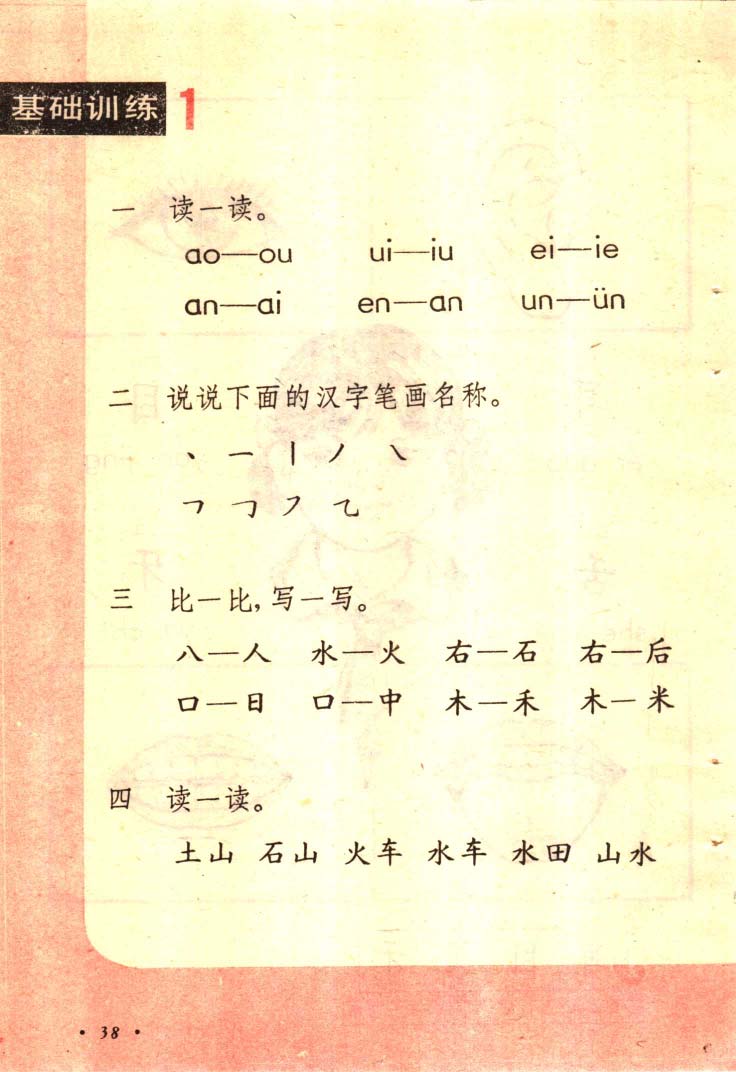 基础训练 1
一 读一读。
ɑo—ou ui—iu ei—ie
ɑn—ɑi en—ɑn un—ün
二 说说下面的汉字笔画名称。
丶 一 丨 丿 ㇏
㇕ ㇆ ㇇ ㇈
三 比一比,写一写。
八—人 水—火 右—石 右—后
口—日 口—中 木—禾 木—米
四 读一读。
土山 石山 火车 水车 水田 山水
· 38 ·